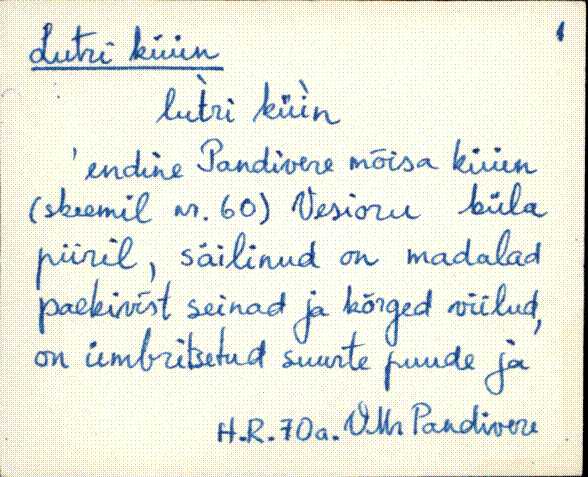 Lutri küün
1
lùtri küǜn
'endine Pandivere mõisa küün
(skeemil nr. 60) Vesioru küla
piiril, säilinud on madalad
paekivist seinad ja kõrged viilud,
on ümbritsetud suurte puude ja
H.R. 70a. VMr Pandivere